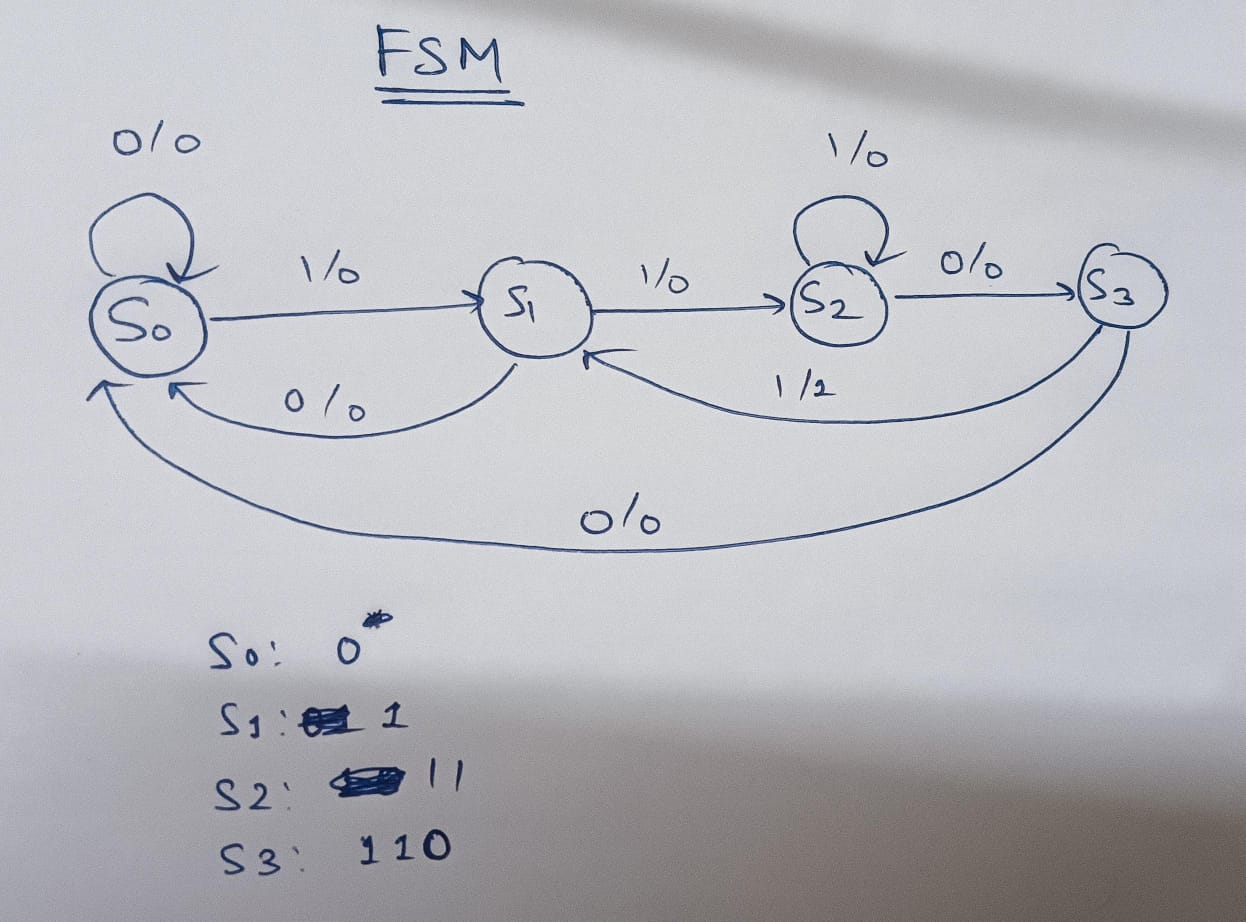 FSM
0/0
1/0
1/0
1/0
0/0
S0
S1
S2
S3
0/0
1/2
0/0
S0: 0
S1: 1
S2: 11
S3: 110